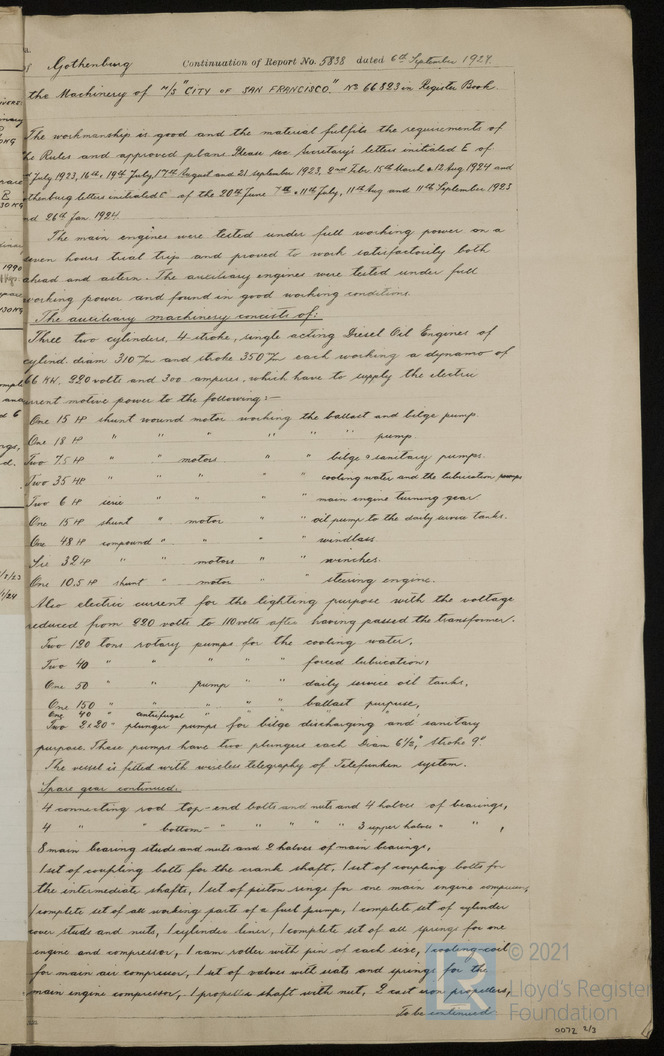 Gothenburg Continuation of Report No. 5838 dated 6th September 1924.
the Machinery of M/S "CITY OF SAN FRANCISCO." No 66823 in Register Book.
The workmanship is good and the material fulfils the requirements of
the Rules and approved plans. Please see Secretary's letters initialed E of
July 1923, 16th, 19th July, 17th August and 21 September 1923, 2nd Febr. 15th March & 12 Aug 1924 and
Gothenburg letters initialed E of the 20th June 7th & 11th July, 11th Aug and 11th September 1923
and 26th Jan 1924.
The main engines were tested under full working power on a
seven hours trial trip and proved to work satisfactorily both
ahead and astern. The auxiliary engines were tested under full
working power and found in good working conditions.
The auxiliary machinery consists of:
Three two cylinders, 4-stroke, single acting Diesel Oil Engines of
cylind. diam 310 m/m and stroke 350 m/m each working a dynamo of
66 KW, 220 volts and 300 amperes, which have to supply the electric
current motive power to the following:—
One 15 HP shunt wound motor working the ballast and bilge pump.
One 18 HP " " " " " " pump
Two 7.5 HP " " motors " " bilge & sanitary pumps.
Two 35 HP " " " " " cooling water and the lubrication pumps
Two 6 HP serie " " " " main engine turning gear.
One 15 HP shunt " motor " " oil pump to the daily service tanks.
One 48 HP compound " " " " windlass
Six 32 HP " " motors " " winches.
One 10.5 HP shunt " motor " " steering engine.
Also electric current for the lighting purpose with the voltage
reduced from 220 volts to 110 volts after having passed the transformer.
Two 120 tons rotary pumps for the cooling water,
Two 40 " " " " " forced lubrication,
One 50 " " pump " " daily service oil tanks,
One 150 " " " " " ballast purpose,
One 40 " centrifugal " " " "
Two 2x20 " plunger pumps for bilge discharging and sanitary
purpose. These pumps have two plungers each Diam 6½", stroke 9".
The vessel is fitted with wireless telegraphy of Telefunken system.
Spare gear continued:
4 connecting rod top-end bolts and nuts and 4 halves of bearings,
4 " " bottom- " " " " " 3 upper halves " " ,
8 main bearing studs and nuts and 2 halves of main bearings,
1 set of coupling bolts for the crank shaft, 1 set of coupling bolts for
the intermediate shafts, 1 set of piston rings for one main engine compressor,
1 complete set of all working parts of a fuel pump, 1 complete set of cylinder
cover studs and nuts, 1 cylinder liner, 1 complete set of all springs for one
engine and compressor, 1 cam roller with pin of each size, 1 cooling-coil
for main air compressor, 1 set of valves with seats and springs for the
main engine compressor, 1 propeller shaft with nut, 2 cast iron propellers,
To be continued
© 2021
Lloyd's Register
Foundation
0072 2/3